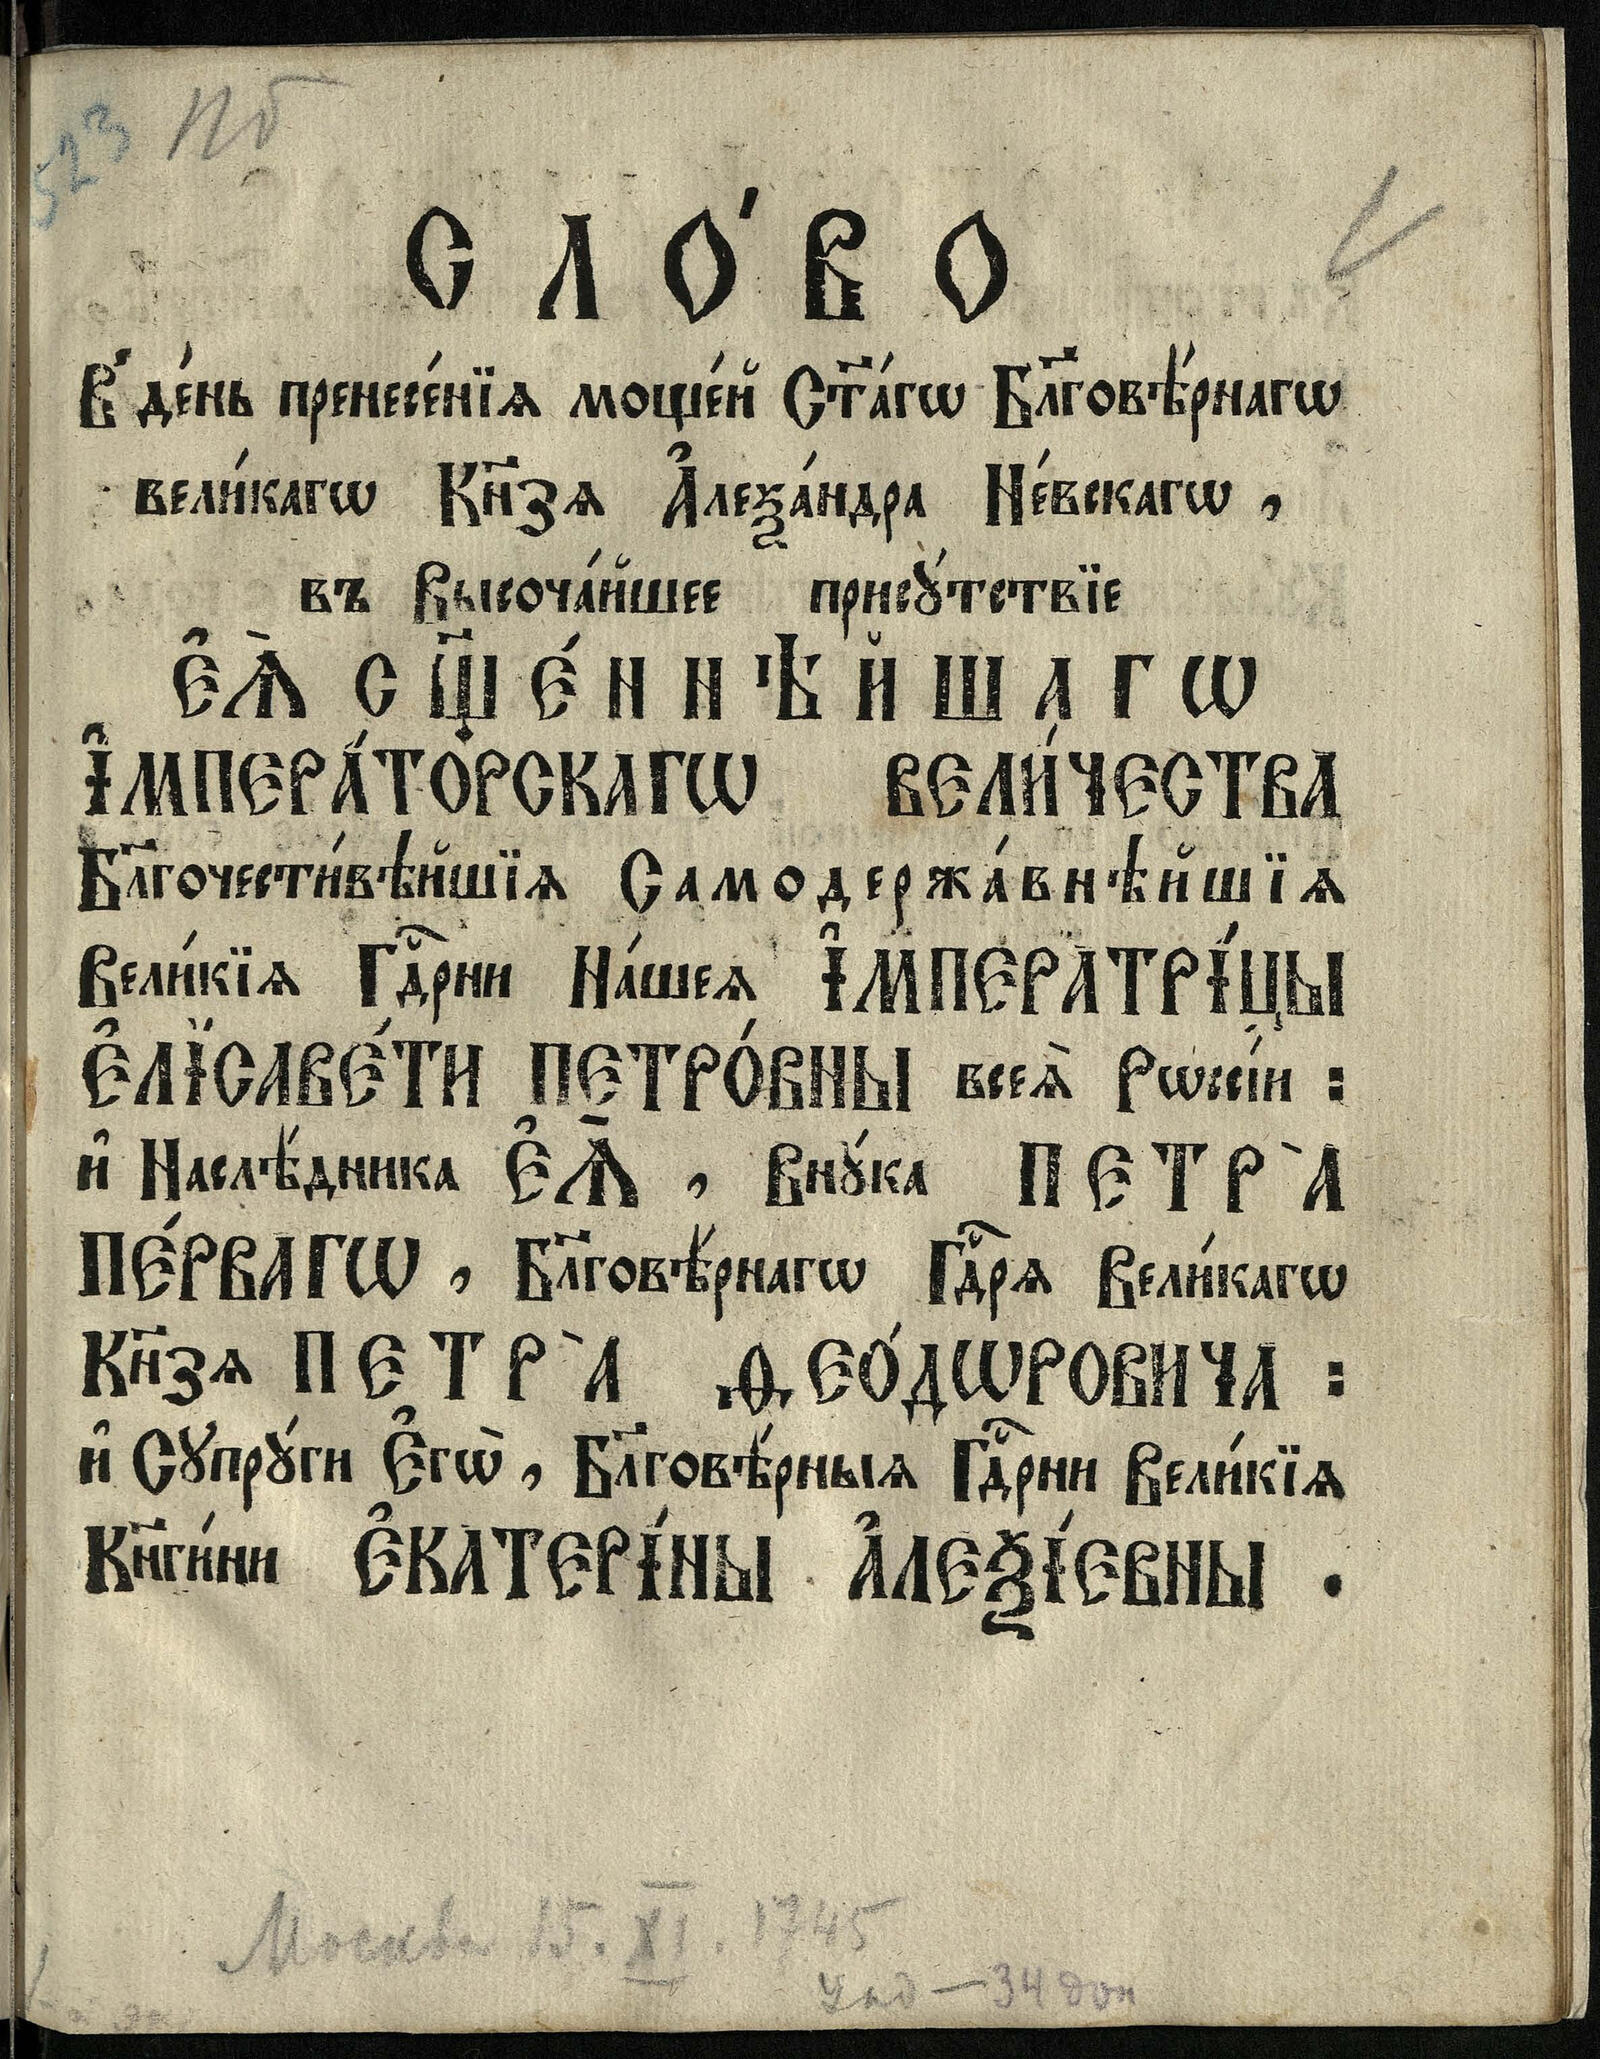 523 Пб
СЛО́ВО
В̾ де́нь пренесе́нїѧ моще́й Ст҃а́гѡ Бл҃говѣ́рнагѡ
вели́кагѡ Кн҃зѧ А҆леѯа́ндра Не́вскагѡ,
въ Высоча́йшее прису́тствїе
Е҆Ѧ̀ СЩ҃Е́ННѢЙШАГѠ
І҆МПЕРА́ТОРСКАГѠ ВЕЛИ́ЧЕСТВА
Бл҃гочести́вѣйшїѧ Самодержа́внѣйшїѧ
Вели́кїѧ Гдⷭ҇рни На́шеѧ І҆МПЕРАТРІ́ЦЫ
Е҆ЛЇСАВЕ́ТИ ПЕТРО́ВНЫ всеѧ̀ Рѡссі́и :
и҆ Наслѣ́дника Е҆Ѧ̀, Внꙋ́ка ПЕТРА̀
ПЕ́РВАГѠ, Бл҃говѣ́рнагѡ Гдⷭ҇рѧ Вели́кагѡ
Кн҃зѧ ПЕТРА̀ ѲЕО́ДѠРОВИЧА :
и҆ Сꙋпрꙋ́ги Е҆гѡ̀, Бл҃говѣ́рныѧ Гдⷭ҇рни Вели́кїѧ
Кн҃ги́ни Е҆КАТЕРІ́НЫ А҆ЛЕѮІ́ЕВНЫ .
Москва 15. XI. 1745
Унд — 34 доп